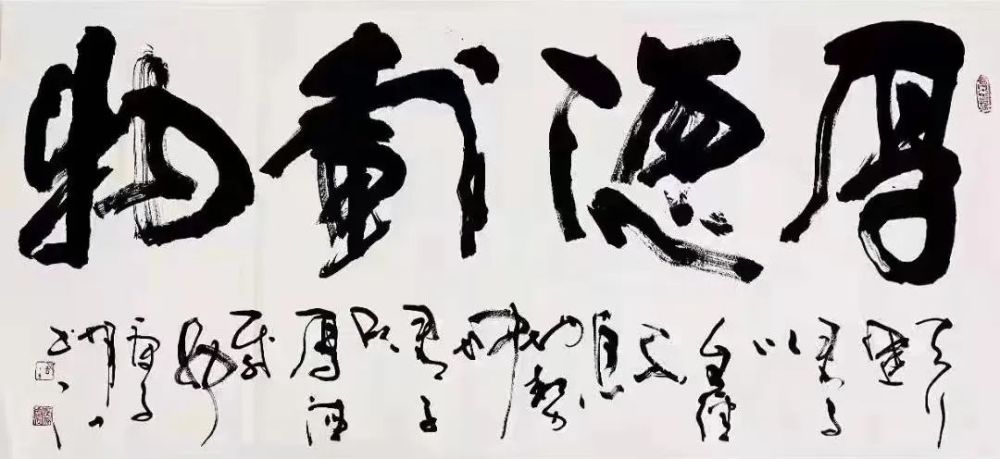 厚德載物
天行
健
君子
以
自強
不
息
地勢
坤
君子
以
厚德
載
物